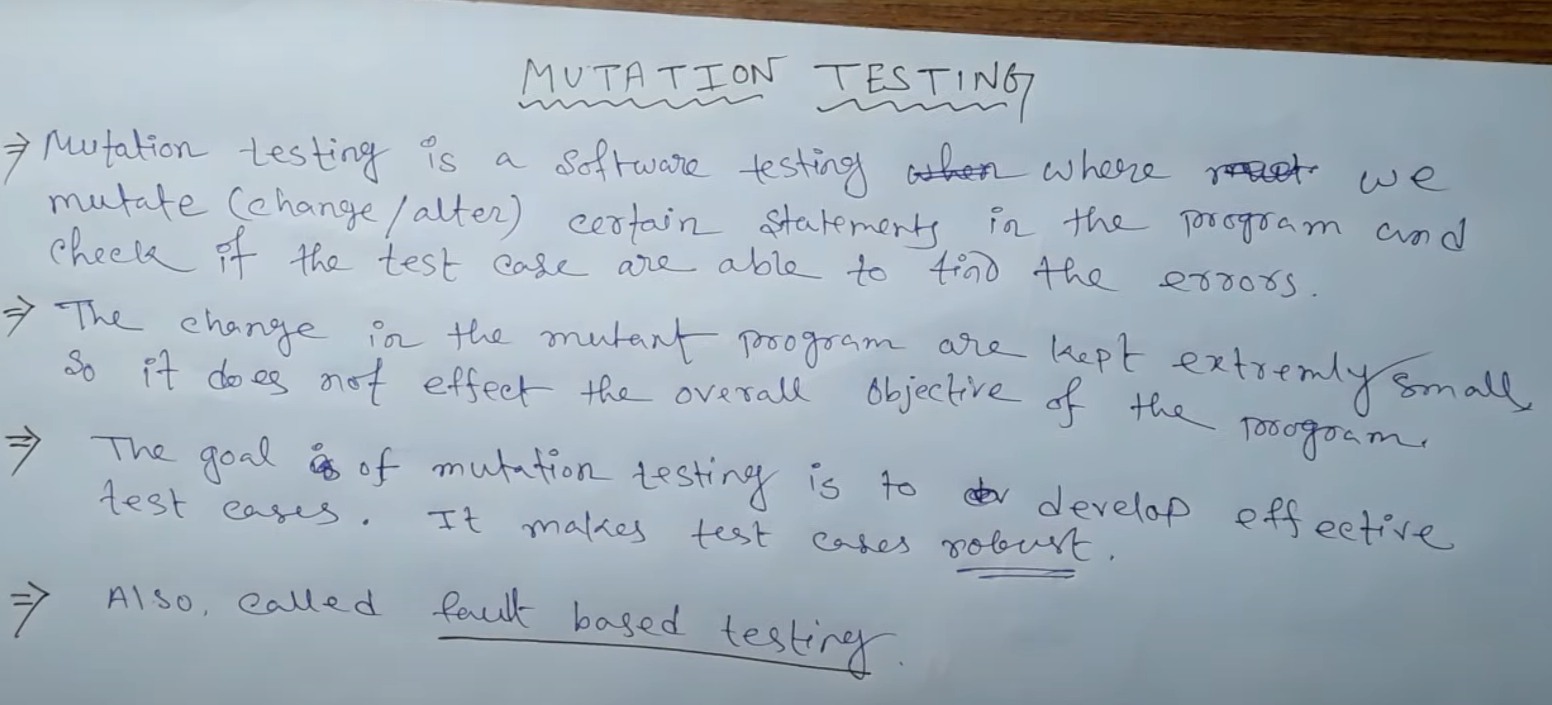 MUTATION TESTING
⇒ Mutation testing is a software testing when where we
mutate (change/alter) certain statements in the program and
check if the test case are able to find the errors.
⇒ The change in the mutant program are kept extremly small,
So it does not effect the overall objective of the program.
⇒ The goal of mutation testing is to develop effective
test cases. It makes test cases robust.
⇒ Also, called fault based testing.